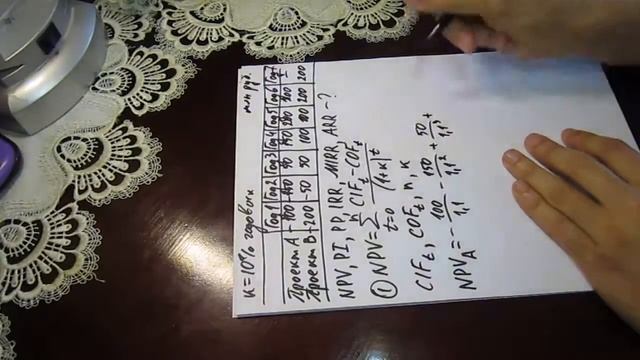 к=10% годовых млн руб.
Год1 Год2 Год3 Год4 Год5 Год6 Год7
Проект А -100 50 200 300
Проект В -200 -50 50 100 200 200
NPV, PI, PP, IRR, MIRR, ARR - ?
① NPV = Σ n t=0 CIFt - COFt / (1+к)^t
CIFt, COFt, n, к
NPV_A = - 100/1,1 - 150/1,1² + 50/1,1³ +